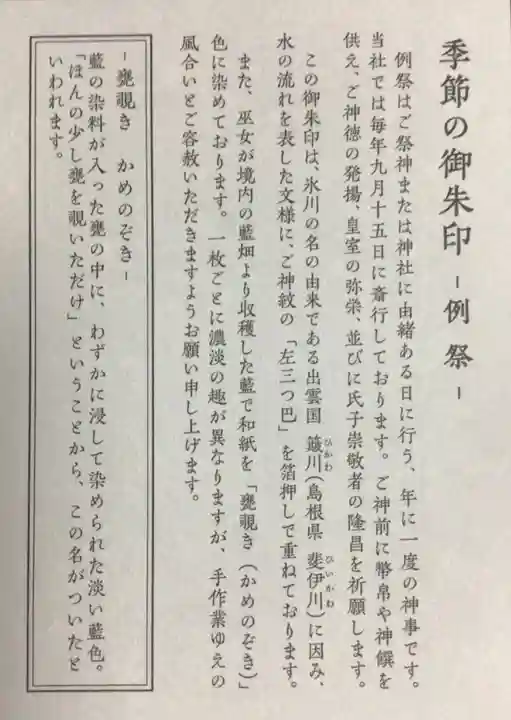 季節の御朱印 - 例祭 -
例祭はご祭神または神社に由緒ある日に行う、年に一度の神事です。
当社では毎年九月十五日に斎行しております。ご神前に幣帛や神饌を
供え、ご神徳の発揚、皇室の弥栄、並びに氏子崇敬者の隆昌を祈願します。
この御朱印は、氷川の名の由来である出雲国 簸川(ひかわ)(島根県 斐伊川(ひいかわ))に因み、
水の流れを表した文様に、ご神紋の「左三つ巴」を箔押しで重ねております。
また、巫女が境内の藍畑より収穫した藍で和紙を「甕覗き(かめのぞき)」
色に染めております。一枚ごとに濃淡の趣が異なりますが、手作業ゆえの
風合いとご容赦いただきますようお願い申し上げます。
- 甕覗き かめのぞき -
藍の染料が入った甕の中に、わずかに浸して染められた淡い藍色。
「ほんの少し甕を覗いただけ」ということから、この名がついたと
いわれます。